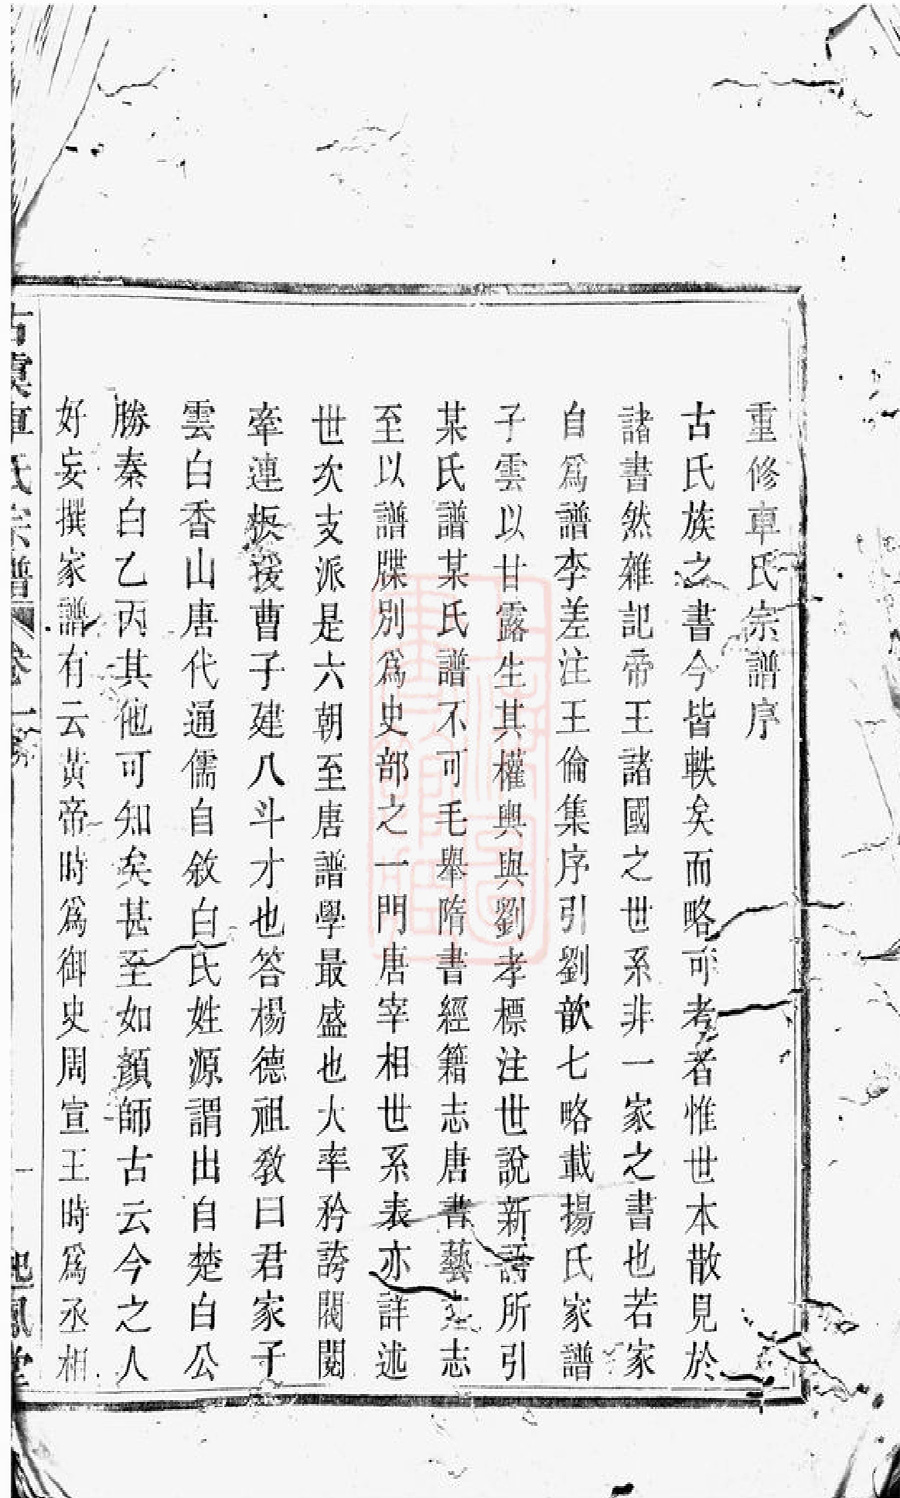 重修車氏宗譜序
古氏族之書今皆軼矣而略可考者惟世本散見於
諸書然雜記帝王諸國之世系非一家之書也若家
自爲譜李差注王倫集序引劉歆七略載揚氏家譜
子雲以甘露生其權輿與劉孝標注世說新語所引
某氏譜某氏譜不可毛舉隋書經籍志唐書藝文志
至以譜牒別爲史部之一門唐宰相世系表亦詳述
世次支派是六朝至唐譜學最盛也大率矜誇閥閱
牽連扳援曹子建八斗才也答楊德祖教曰君家子
雲白香山唐代通儒自敘白氏姓源謂出自楚白公
勝秦白乙丙其他可知矣甚至如顏師古云今之人
好妄撰家譜有云黃帝時爲御史周宣王時爲丞相
古虞車氏宗譜 卷一 一 起鳳堂